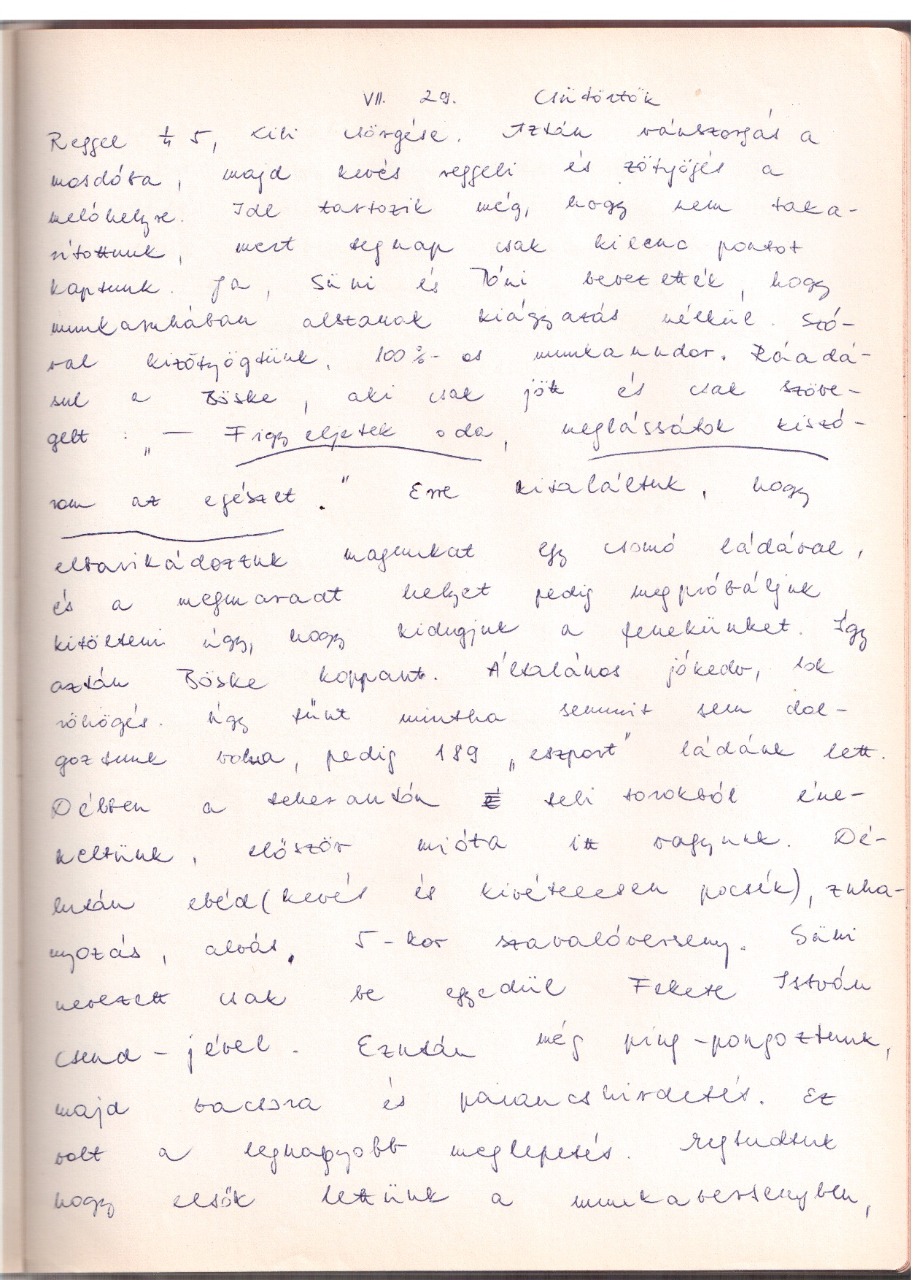 VII. 29. Csütörtök
Reggel 1/4 5, Kiki csörgése. Aztán vánszorgás a
mosdóba, majd kevés reggeli és zötyögés a
melóhelyre. Ide tartozik még, hogy nem taka-
rítottunk, mert tegnap csak kilenc pontot
kaptunk. Ja, Süni és Tóni bevezették, hogy
munkaruhában alszanak kiágyazás nélkül. Szó-
val kizötyögtünk. 100%-os munka nudor. Ráadá-
sul a Böske, aki csak jött és csak szöve-
gelt : „ — Figyeljetek oda, meglássátok kiszó-
rom az egészet." Erre kitaláltuk, hogy
elbarikádozzuk magunkat egy csomó ládával,
és a megmaradt helyet pedig megpróbáljuk
kitölteni úgy, hogy kidugjuk a fenekünket. Így
aztán Böske koppant. Általános jókedv, sok
röhögés. Úgy tűnt mintha semmit sem dol-
goztunk volna, pedig 189 „eszport" ládánk lett.
Délben a teherautón teli torokból éne-
keltünk, először mióta itt vagyunk. Dé-
lután ebéd (kevés és kivételesen pocsék), zuha-
nyozás, alvás. 5-kor szavalóverseny. Süni
nevezett csak be egyedül Fekete István
csend-jével. Ezután még ping-pongoztunk,
majd vacsora és parancshirdetés. Ez
volt a legnagyobb meglepetés. Megtudtuk
hogy elsők lettünk a munkaversenyben,